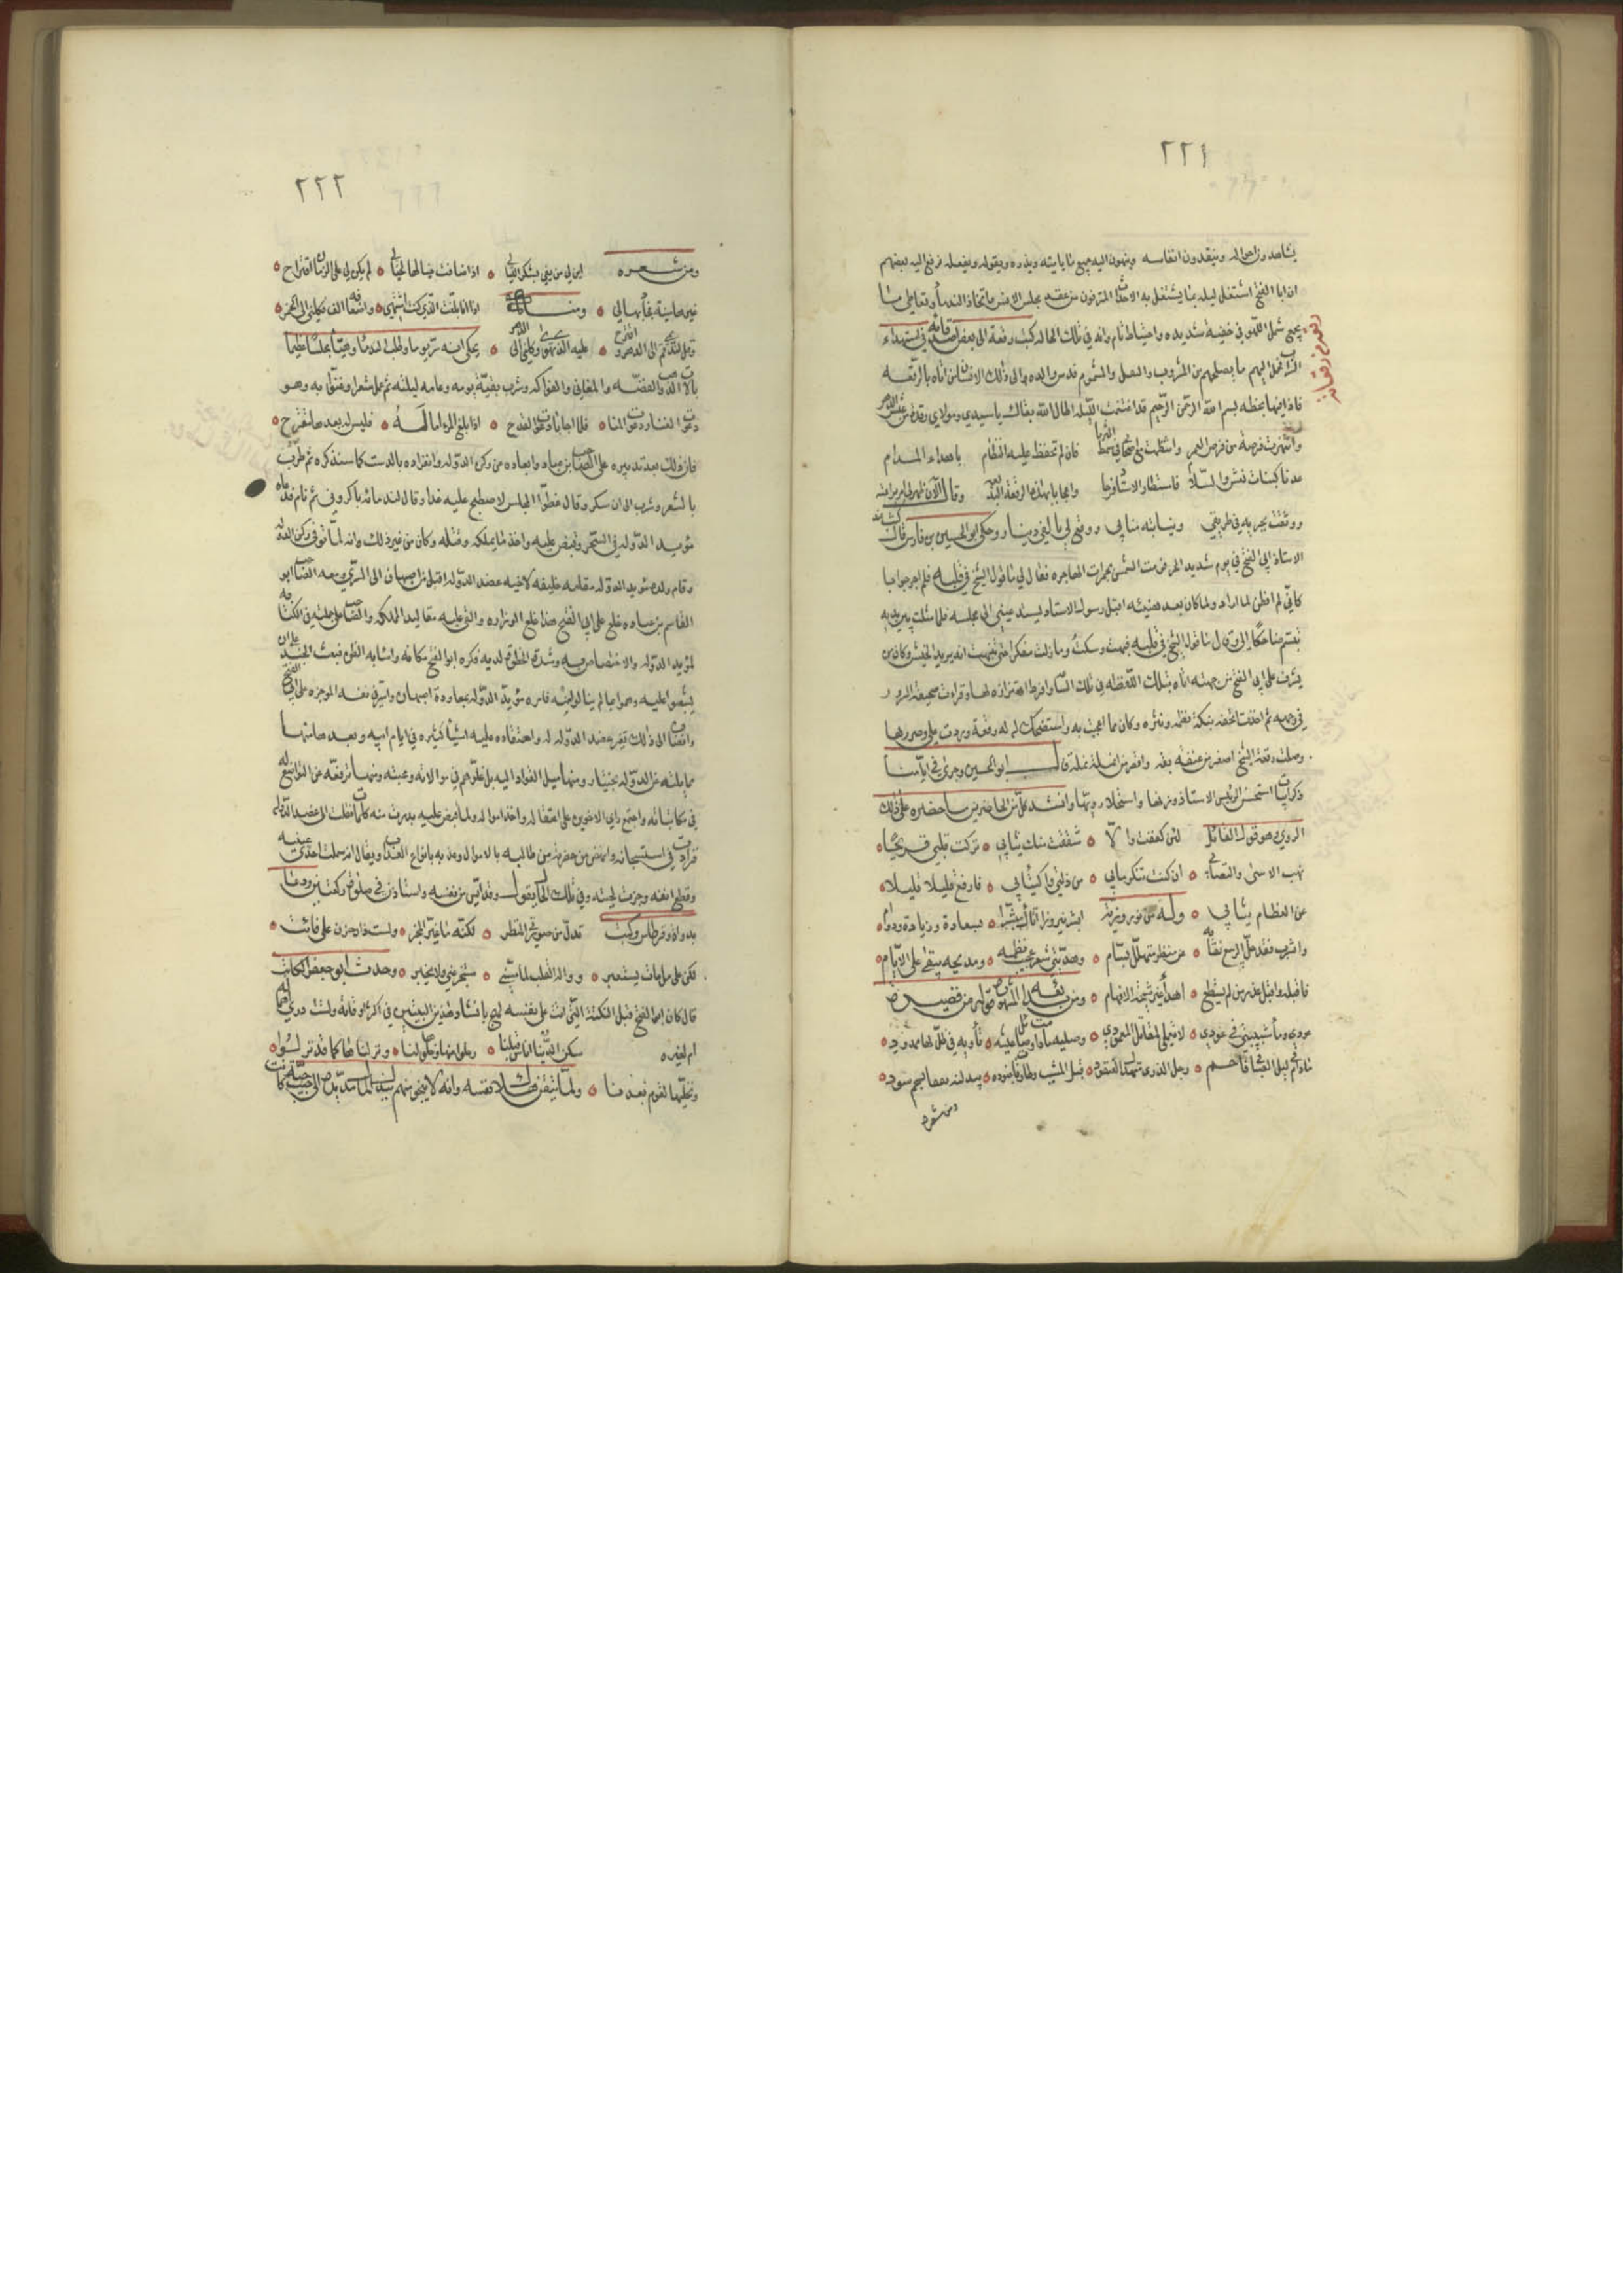 ٢٢١
يشاهدون احواله وينتقدون انفاسه وينهون اليه جميع ما ياتيه ويذره ويقوله ويفعله فرفع اليه بعضهم
ان ابا الفتح اشتغل ليله بما يشتغل به الاحداث المترفون من عقد مجلس الانس واتخاذ الندما وتعاطي ما
يجمع شمل اللهو في خفية شديده واحتياط تام وانه في تلك الحاله كتب رقعة الى بعض اصدقائه في استهداء
الشراب فحمل اليهم ما يصلحهم من المشروب والنقل والمشموم فدس والده الى ذلك الانسان من اتاه بالرقعه
فاذا فيها بخطه بسم الله الرحمن الرحيم قد اغتنمت الليله اطال الله بقاك يا سيدي ومولاي رقدة من عين الدهر
وانتهزت فرصة من فرص العمر وانتظمت مع اصحابي في سمط الثريا فان لم تحفظ علينا النظام باهداء المدام
عدنا كبنات نعش والسلام فاستطار الاستاذ فرحا واعجابا بهذه الرقعة البديعه وقال الآن ظهر لي امر براعته
ووثقت بجريه في طريقي ونيابته منابي ووقع لي بالفي دينار وحكى ابو الحسين بن فارس قال كنت عند
الاستاذ ابي الفتح في يوم شديد الحر رمت الشمس بجمرات الهاجره فقال لي ما قول الشيخ في قلبه فلم احر جوابا
لاني لم افطن لما اراد ولما كان بعد هنيئه اقبل رسول الاستاذ يستدعيني الى مجلسه فلما مثلت بين يديه
تبسم ضاحكا الي وقال ما قول الشيخ في قلبه فبهت وسكت وما زلت مفكرا حتى تنبهت انه يريد الخيش وكان من
يشرف على ابي الفتح من جهته اتاه بتلك اللفظه في تلك الساعه فافرط اهتزازه لها وقرات صحيفة السرور
في وجهه ثم اخذت اتحفه بنكت نظمه ونثره وكان مما اعجب به واستضحك له رقعة وردت علي وصدرها
وصلت رقعة الشيخ اصغر من عنفقة بقه واقصر من انملة نمله قال ابو الحسين وجرى في ايامنا
ذكر ابيات استحسن الرئيس الاستاذ وزنها واستحلا رويها وانشد كل من الحاضرين ما حضره على ذلك
الروي وهو قول القائل لئن كففت والا ٥ شققت منك ثيابي ٥ تركت قلبي قريحا ٥
نهب الاسى والتصابي ٥ ان كنت تنكر ما بي ٥ من ذلتي واكتئابي ٥ فارفع قليلا قليلا ٥
عن العظام ثيابي ٥ وله من نوروزية ابشر بنوروز اتاك مبشرا ٥ بسعادة وزيادة ودوام ٥
واشرب فقد حل الربيع نقابه ٥ عن منظر متهلل بسام ٥ وهديتي شعر عجيب نظمه ٥ ومديحه يبقى على الايام ٥
فاقبله واقبل عذر من لم يستطع ٥ اهدا غير نتيجة الافهام ٥ ومن بدايعه المشهوره قوله من قصيده
عودي وماء شبيبتي في عودي ٥ لا تعمدي لمقاتل المعمودي ٥ وصليه ما دامت اصايل عيشه ٥ تاويه في ظل لها ممدود ٥
ما دام ليل الشباب فاحم ٥
قبل المشيب وطارقات جنوده ٥ يبدلنه يققا بسحم سود ٥
ومن شعره
٢٢٢
ومن شعره اين لي من يفي بشكر الليالي ٥ اذ اضافت خيالها لخيالي ٥ لم يكن لي على الزمان اقتراح ٥
غيرها منية فجادبها لي ٥ ومنه اذا انا بلغت الذي كنت اشتهي ٥ واضعافه الفا فكلني الى الخمر ٥
وقل لنديمي قم الى الدهر واقترح ٥ عليه الذي تهوى وكلني الى الدهر ٥ يحكى انه سر يوما وطلب الندما وهيا مجلسا عظيما
بالات الذهب والفضه والمغاني والفواكه وشرب بقية يومه وعامه ليلته ثم عمل شعرا وغنوا به وهو
دعوت الغنا ودعوت المنا ٥ فلما اجابا دعوت القدح ٥ اذا بلغ المرء اماله ٥ فليس له بعدها مقترح ٥
وكان ذلك بعد تدبيره على الصاحب ابن عباد وابعاده عن ركن الدوله وانفراده بالدست كما سنذكره ثم طرب
بالشعر وشرب الى ان سكر وقال غطوا المجلس لاصطبح عليه غدا وقال لندمائه باكروني ثم نام فدعاه
مويد الدوله في السحر وقبض عليه واخذ ما يملكه وقتله وكان من خبر ذلك وانه لما توفي ركن الدوله
وقام ولده مويد الدوله مقامه خليفه لاخيه عضد الدوله اقبل من اصبهان الى الري ومعه الصاحب ابو
القاسم بن عباد فخلع على ابي الفتح هذا خلع الوزاره والقى عليه مقاليد المملكه والصاحب على جملته في الكتابه
لمويد الدوله والاختصاص به وشدة الحظوة لديه فكره ابو الفتح مكانه واساء به الظن فبعث الجند على ان
يشغبوا عليه وهموا بما لم ينالوا منه فامره مويد الدوله بمعاودة اصبهان واسر في نفسه الموجده على ابي الفتح
وانضاف الى ذلك تغير عضد الدوله له واعتقاده عليه اشيا كثيره في ايام ابيه وبعدها منها
ممايلته عز الدوله بختيار ومنها ميل القواد اليه بل غلوهم في موالاته ومحبته ومنها ترفعه عن التواضع له
في مكاتباته واجتمع راي الاخوين على اعتقاله واخذ امواله ولما قبض عليه بدرت منه كلمات نقلت الى عضد الدوله
فزادت في استيحاشه وانهض من حضرته من طالبه بالاموال وعذبه بانواع العذاب ويقال انه سملت احدى عينيه
وقطع انفه وجزت لحيته وفي تلك الحال يقول وقد ايس من نفسه واستاذن في صلوة ركعتين ودعا
بدواة وقرطاس وكتب تبدل من صورتي المنظر ٥ لكنه ما غير المخبر ٥ ولست ذا حزن على فائت ٥
لكن على من بات يستعبر ٥ وواله القلب لما مسني ٥ مستخبر عني ولا يخبر ٥ وحدث ابو جعفر الكاتب
قال كان ابو الفتح قبل النكبة التي اتت على نفسه لهج بانشاد هذين البيتين في اكثر اوقاته ولست ادري اهما له
ام لغيره سكن الدنيا اناس قبلنا ٥ رحلوا عنها وخلوها لنا ٥ ونزلناها كما قد نزلوا ٥
ونخليها لقوم بعدنا ٥ ولما تيقن هلاك نفسه وانه لا ينجو منهم ببذل المال مد يده الى جيب جبة كانت